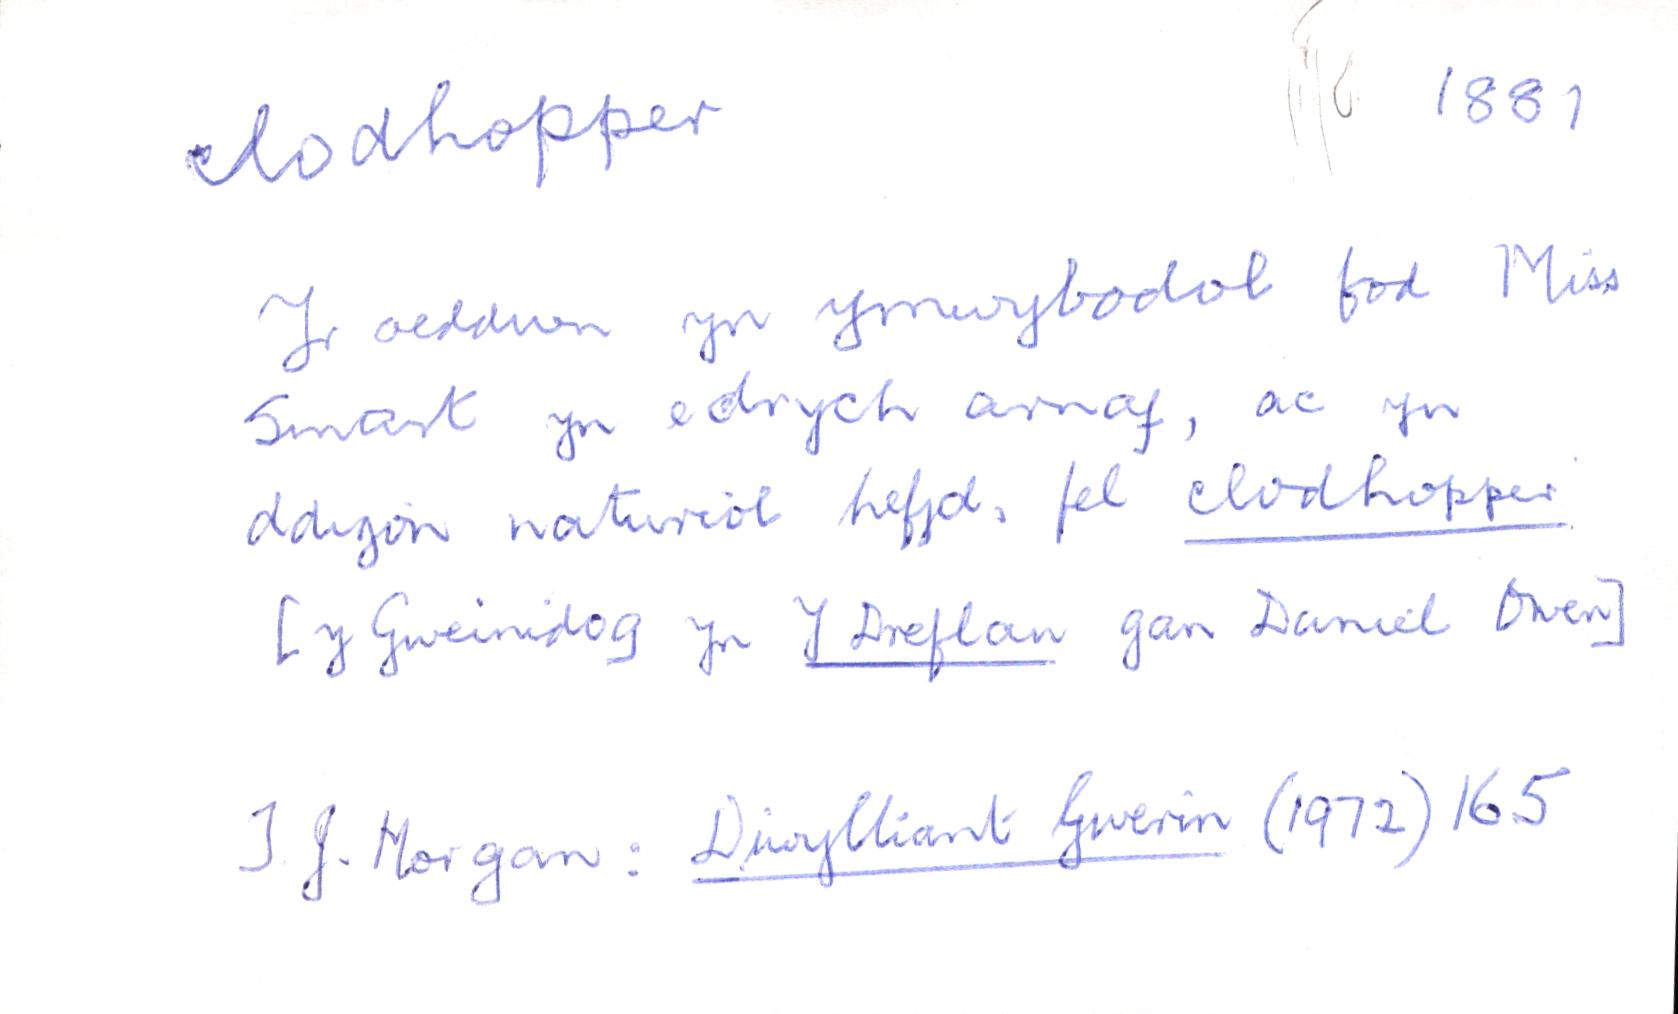 clodhopper 1881
Yr oeddwn yn ymwybodol fod Miss
Smart yn edrych arnaf, ac yn
ddigon naturiol hefyd, fel clodhopper
[y Gweinidog yn Y Dreflan gan Daniel Owen]
T. J. Morgan: Diwylliant Gwerin (1972) 165